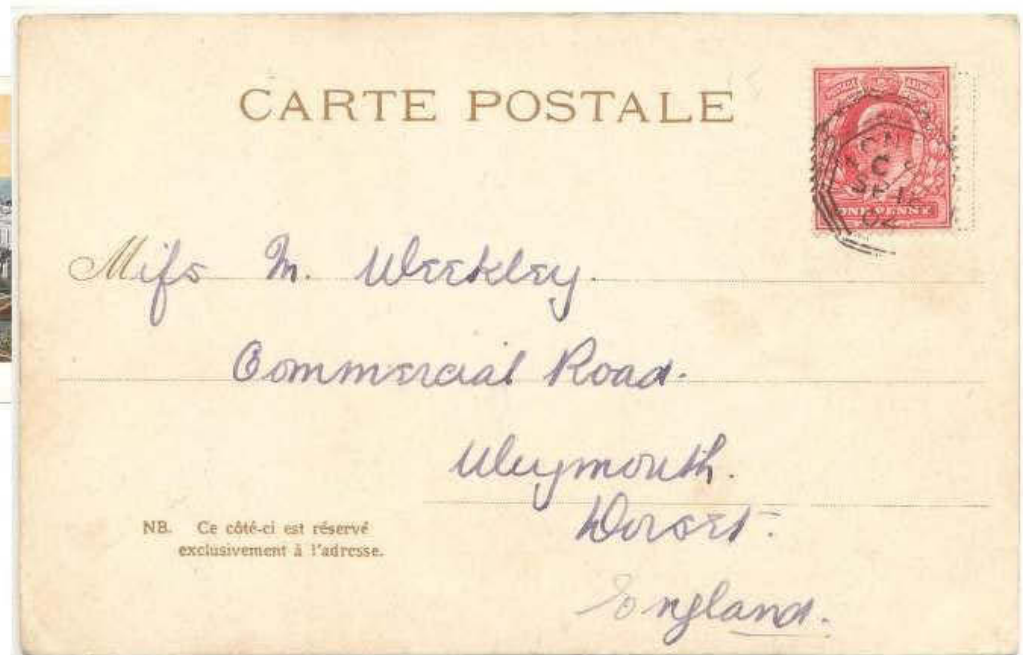 CARTE POSTALE
POSTAGE
ONE PENNY
C
SP 16
02
Mifs M. Weekley.
Commercial Road.
Weymouth.
Dorset.
England.
NB. Ce côté-ci est réservé
exclusivement à l'adresse.